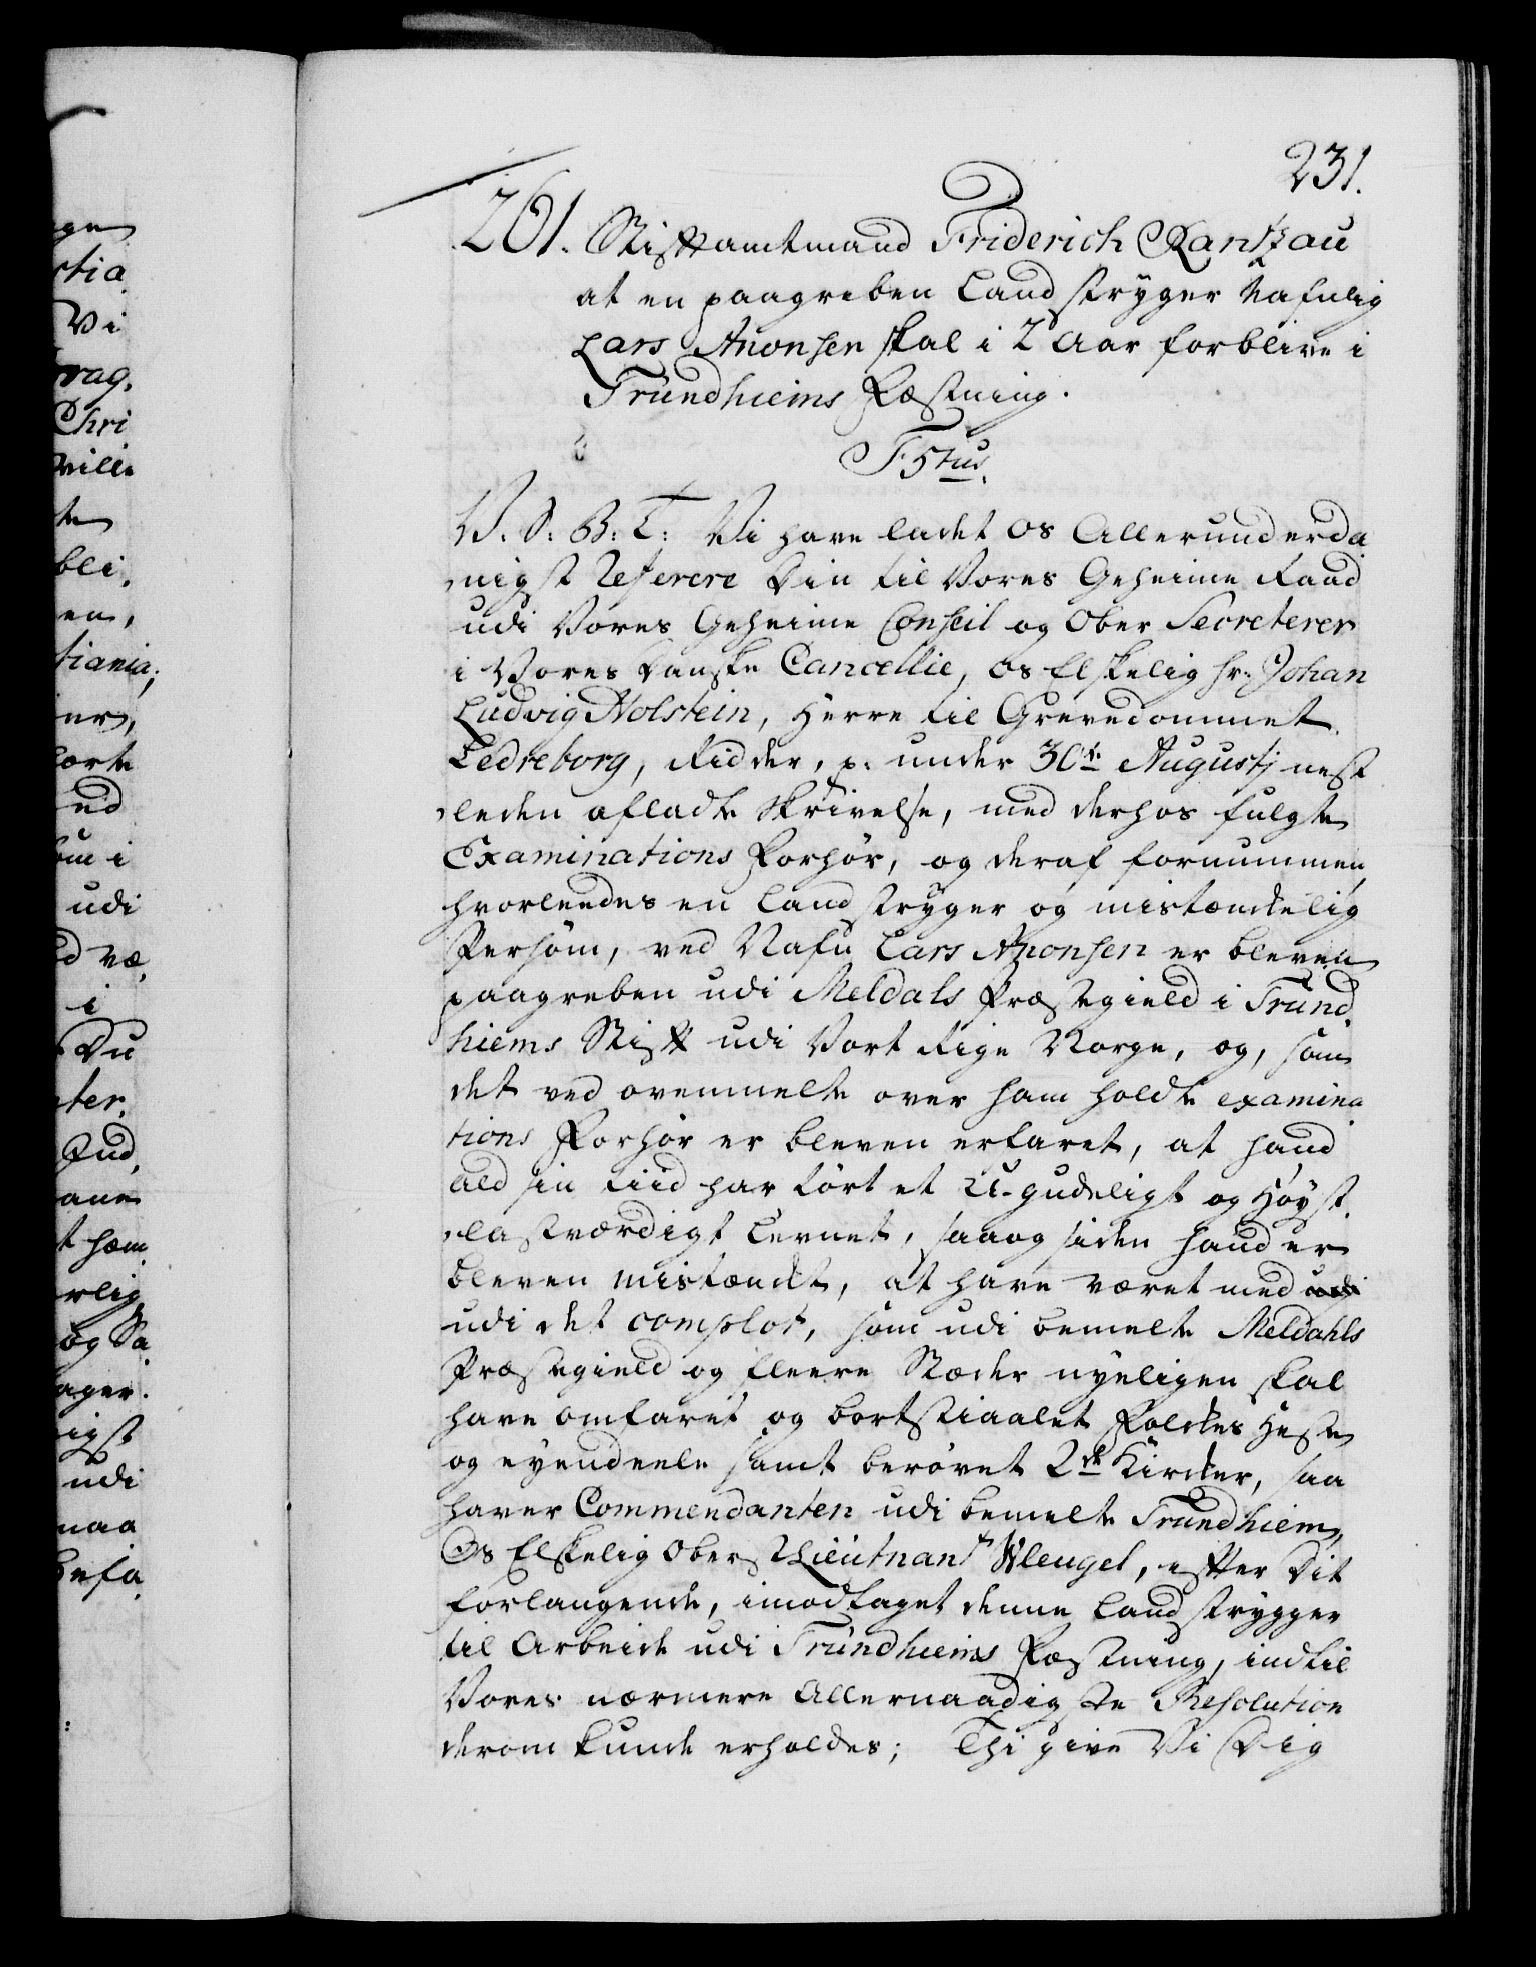 231.
261. Stiftamtmand Friderich Rantzau
at en paagreben Landstryger Nafnlig
Lars Anonsen skal i 2 Aar forblive i
Trundhiems Fæstning.
F 5tus.
V. S: B: T: Vi have ladet os Allerunderda
nigst Referere Din til Vores Geheime Raad
udi Vores Geheime Conseil og Ober Secreterer
i Vores Danske Cancellie, os Elskelig Hr: Johan
Ludvig Holstein, Herre til Grevedommet
Ledreborg, Ridder, p. under 30te Augustj nest
leden afladte Skrivelse, med derhos fulgte
Examinations Forhør, og deraf fornummen,
hvorleedes en Landstryger og mistænkelig
Persohn, ved Nafn Lars Anonsen er bleven
paagreben udi Meldals Præstegield i Trund
hiems Stift udi Vort Rige Norge, og, som
det ved ovenmelte over ham holdte examina
tions Forhør er bleven erfaret, at hand
ald sin Tiid har ført et U-gudeligt og Høyst
lastværdigt Levnet, saa og siden hand er
bleven mistænkt, at have været med udi
udi det complot, som udi bemelte Meldahls
Præstegield og fleere Stæder nyeligen skal
have omfaret og bortstiaalet Folckes Heste
og eyendeele samt berøvet 2de Kircker, saa
haver Commendanten udi bemelte Trundhiem,
Os Elskelig Oberst Lieutnant Wleugel, efter Dit
forlangende, imodtaget denne Landstrygger
til Arbeide udi Trundhiems Fæstning, indtil
Vores nærmere Allernaadigste Resolution
derom kunde erholdes; Thi give Vi Dig